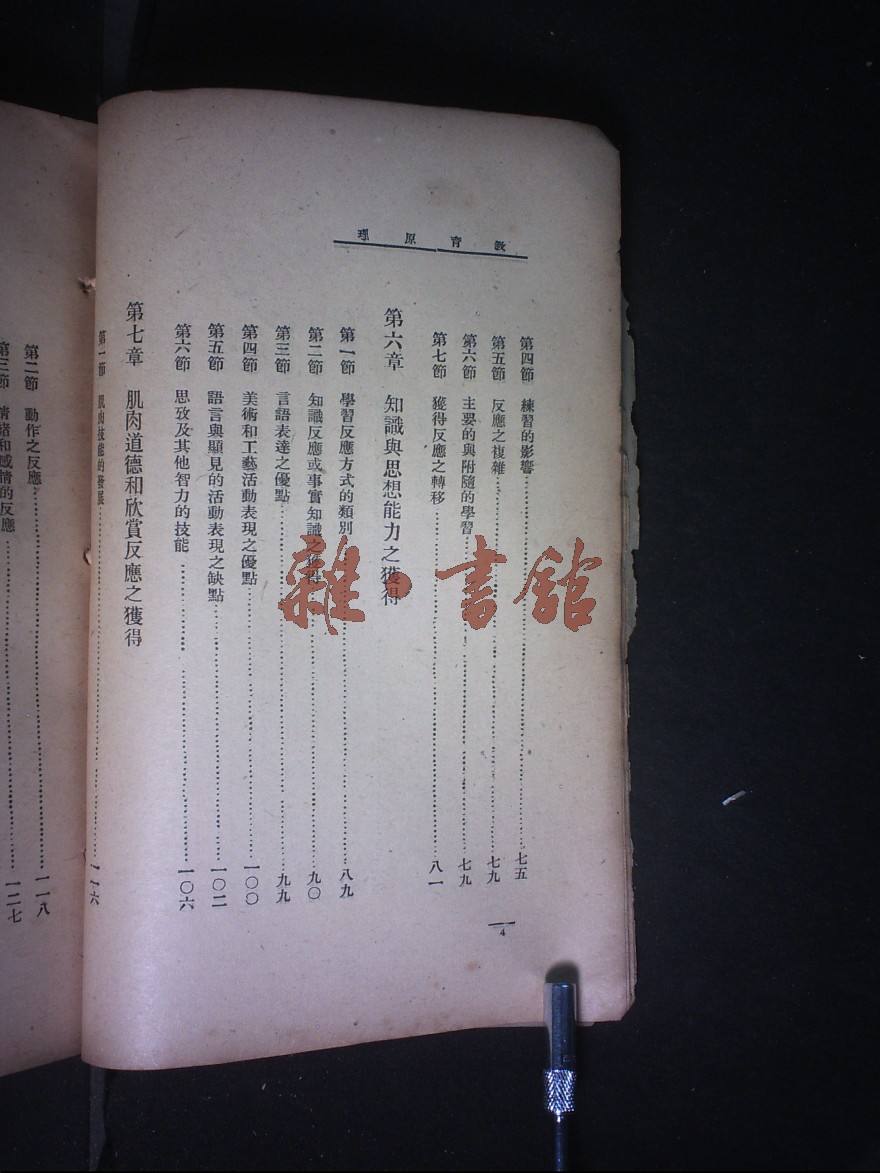 教育原理
第四節　練習的影響……七五
第五節　反應之複雜……七九
第六節　主要的與附隨的學習……七九
第七節　獲得反應之轉移……八一
第六章　知識與思想能力之獲得
第一節　學習反應方式的類別……八九
第二節　知識反應或事實知識之獲得……九〇
第三節　言語表達之優點……九九
第四節　美術和工藝活動表現之優點……一〇〇
第五節　語言與顯見的活動表現之缺點……一〇二
第六節　思攷及其他智力的技能……一〇六
第七章　肌肉道德和欣賞反應之獲得
第一節　肌肉技能的發展……一一六
4
第二節　動作之反應……一一八
第三節　情緒和感情的反應……一二七
雜·書館